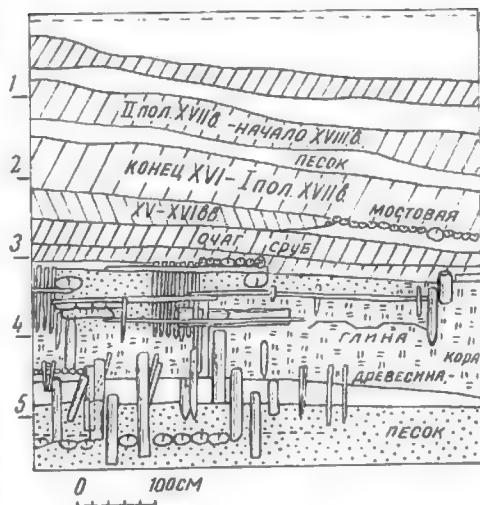 1
II ПОЛ. XVIIВ.-НАЧАЛО XVIIIВ.
ПЕСОК
2
КОНЕЦ XVI-I ПОЛ. XVIIВ.
XV-XVIВВ.
МОСТОВАЯ
ОЧАГ СРУБ
3
4
ГЛИНА
КОРА
ДРЕВЕСИНА-
5
ПЕСОК
0 100СМ